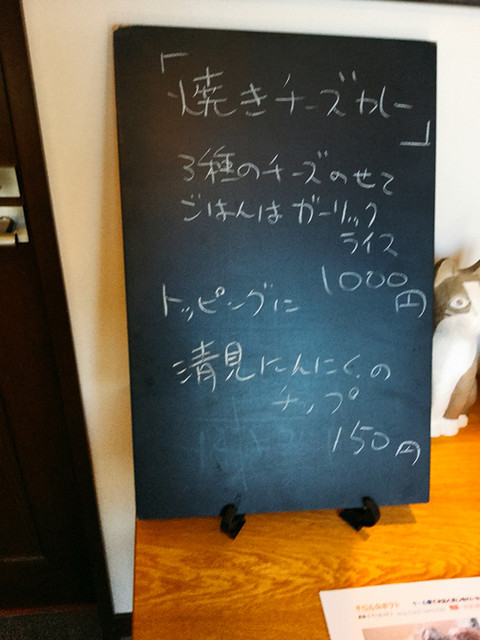 「焼きチーズカレー」
3種のチーズのせて
ごはんはガーリック
ライス
1000円
トッピングに
清見にんにくの
チップ
150円